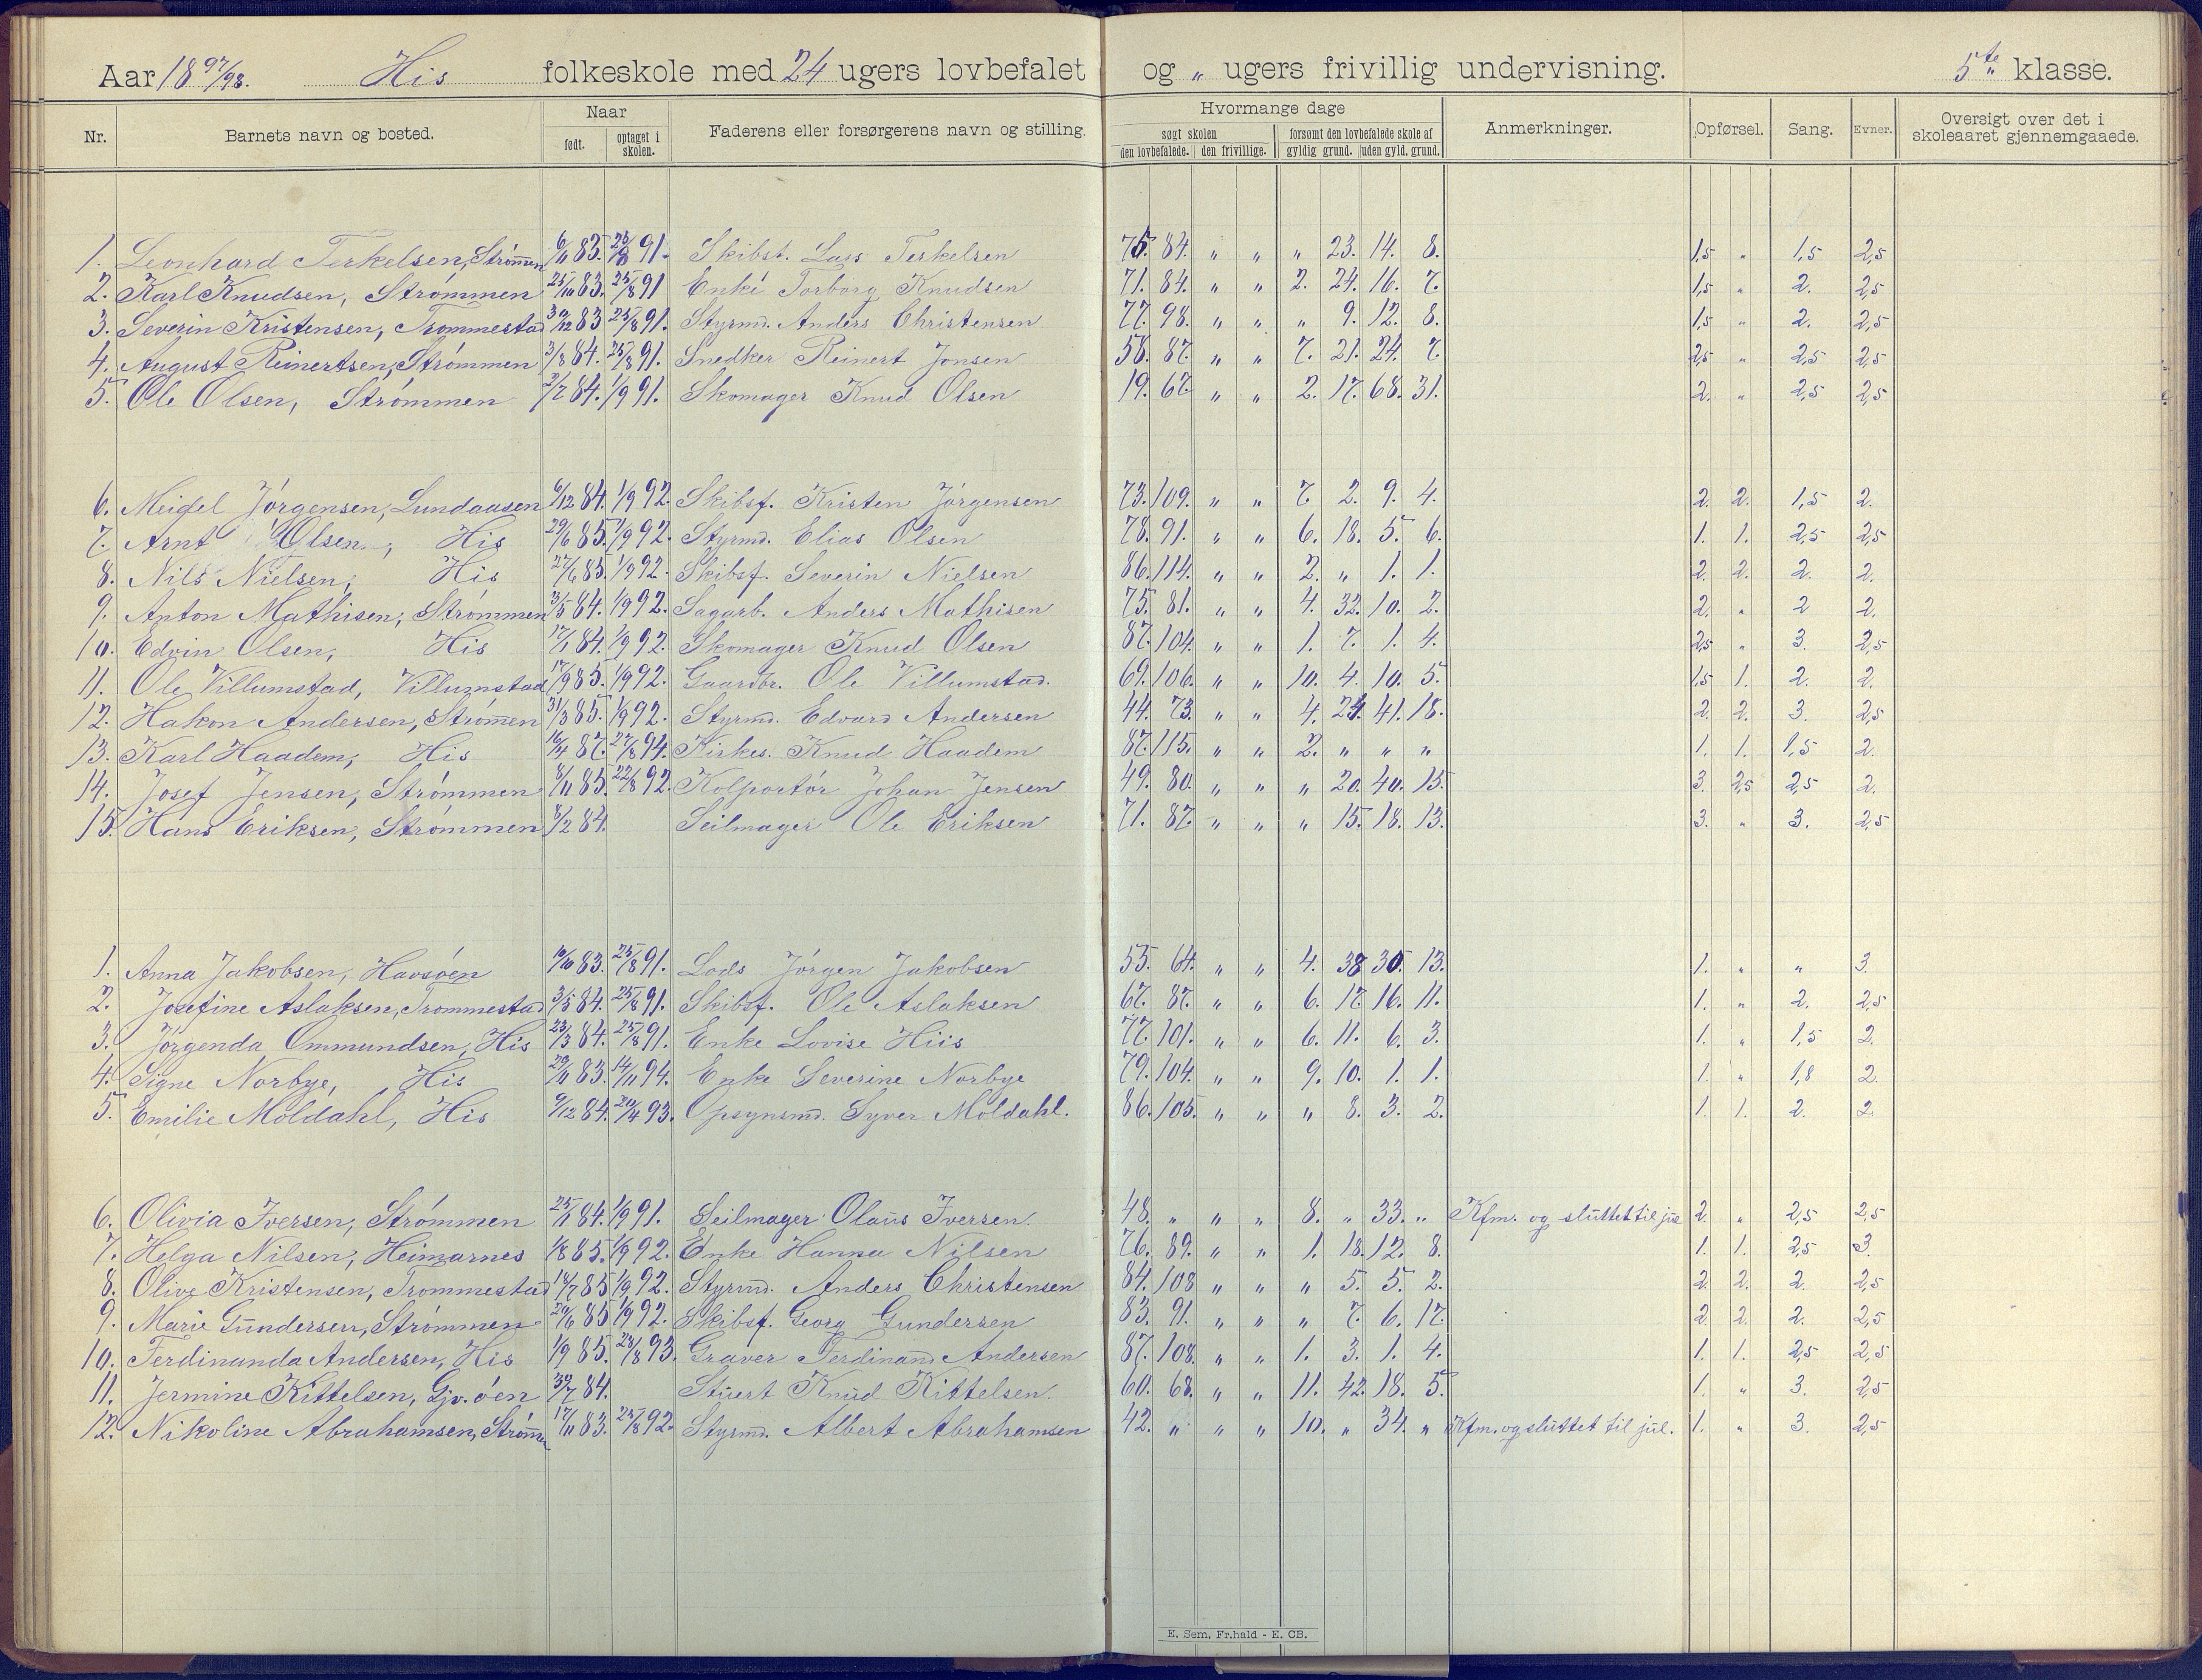 Aar 1897/98. His folkeskole med 24 ugers lovbefalet og „ ugers frivillig undervisning. 5te klasse.
Nr. Barnets navn og bosted. Naar født. optaget i skolen. Faderens eller forsørgerens navn og stilling. Hvormange dage søgt skolen den lovbefalede. den frivillige. forsømt den lovbefalede skole af gyldig grund. uden gyld. grund. Anmerkninger. Opførsel. Sang. Evner. Oversigt over det i skoleaaret gjennemgaaede.
1. Leonhard Terkelsen, Strömmen 6/11 83. 25/8 91. Skibst. Lars Terkelsen 75. 84. „ „ „ 23. 14. 8. 1,5 „ 1,5 2,5
2. Karl Knudsen, Strömmen 25/10 83. 25/8 91 Enke Torborg Knudsen 71. 84. „ „ 2. 24. 16. 7. 1,5 „ 2. 2,5
3. Severin Kristensen, Trommestad 30/12 83 25/8 91. Styrmd. Anders Christensen 77. 98. „ „ „ 9. 12. 8. 1,5 „ 2. 2,5
4. August Reinertsen, Strömmen 3/8 84. 25/8 91. Snedker Reinert Jonsen 58. 87. „ „ 7. 21. 24. 7. 2,5 „ 2,5 2,5
5. Ole Olsen, Strömmen 2/7 84. 1/9 91. Skomager Knud Olsen 19. 67. „ „ 2. 17. 68. 31. 2. „ 2,5 2,5
6. Meidel Jörgensen, Lundaasen 6/12 84. 1/9 92. Skibsf. Kristen Jörgensen 73. 109. „ „ 7. 2. 9. 4. 2. 2. 1,5 2.
7. Arnt Olsen, His 29/6 85. 1/9 92. Styrmd. Elias Olsen 78. 91. „ „ 6. 18. 5. 6. 1. 1. 2,5 2,5
8. Nils Nielsen, His 27/6 85. 1/9 92. Skibsf. Severin Nielsen 86. 114. „ „ 2. „ 1. 1. 2. 2. 2. 2.
9. Anton Mathisen, Strömmen 3/5 84. 1/9 92. Sagarb. Anders Mathisen 75. 81. „ „ 4. 32. 10. 2. 2. „ 2 2.
10. Edvin Olsen, His 17/1 84. 1/9 92. Skomager Knud Olsen 87. 104. „ „ 1. 7. 1. 4. 2,5 „ 3. 2,5
11. Ole Villumstad, Villumstad 17/9 85. 1/9 92. Gaardbr. Ole Villumstad. 69. 106. „ „ 10. 4. 10. 5. 1,5 1. 2. 2.
12. Hakon Andersen, Strömmen 31/3 85. 1/9 92. Styrmd. Edvard Andersen 44. 73. „ „ 4. 24. 41. 18. 2. 2. 3. 2,5
13. Karl Haadem, His 16/4 87. 27/8 94. Kirkes. Knud Haadem 87. 115. „ „ 2. „ „ „ 1. 1. 1,5 2.
14. Josef Jensen, Strömmen 8/11 85. 22/8 92. Kolportör Johan Jensen 49. 80. „ „ „ 20. 40. 15. 3. 2,5 2,5 2.
15. Hans Eriksen, Strömmen 8/2 84. Seilmager Ole Eriksen 71. 87. „ „ „ 15. 18. 13. 3. „ 3. 2,5
1. Anna Jakobsen, Havsöen 10/10 83. 25/8 91. Lods Jörgen Jakobsen 55. 64. „ „ 4. 38 30. 13. 1. „ „ 3.
2. Josefine Aslaksen, Trommestad 3/5 84. 25/8 91. Skibsf. Ole Aslaksen 67. 87. „ „ 6. 17. 16. 11. 1. „ 2. 2,5
3. Jörgenda Ommundsen, His 23/3 84. 25/8 91. Enke Lovise Hiis 77. 101. „ „ 6. 11. 6. 3. 1. „ 1,5 2.
4. Signe Norbye, His 29/11 83. 14/11 94. Enke Severine Norbye 79. 104. „ „ 9. 10. 1. 1. 1. „ 1,8 2.
5. Emilie Moldahl, His 9/12 84. 20/4 93. Opsynsmd. Syver Moldahl. 86. 105. „ „ „ 8. 3. 2. 1. 1. 2. 2.
6. Olivia Iversen, Strömmen 25/1 84. 1/9 91. Seilmager Olaus Iversen. 48. „ „ „ 8. „ 33. „ Kfm. og sluttet til jul 2. „ 2,5 2,5
7. Helga Nilsen, Heimarnes 1/8 85. 1/9 92. Enke Hanna Nilsen 76. 89. „ „ 1. 18. 12. 8. 1. 1. 2,5 3.
8. Olive Kristensen, Trommestad 18/7 85 1/9 92. Styrmd. Anders Christensen 84. 108 „ „ „ 5. 5. 2. 2. 2. 2. 2,5
9. Marie Gundersen, Strömmen 20/6 85 1/9 92. Skibsf. Georg Gundersen 83. 91. „ „ „ 7. 6. 17. 2. 2. 2. 2,5
10. Ferdinanda Andersen, His 1/9 85. 23/8 93. Graver Ferdinand Andersen 87. 108. „ „ 1. 3. 1. 4. 1. 1. 2,5 2,5
11. Jermine Kittelsen, Gjv. öen 30/7 84. Stuert Knud Kittelsen. 60. 68. „ „ 11. 42. 18. 5. 1. „ 3. 2,5
12. Nikoline Abrahamsen, Strömmen 17/11 83. 25/8 92. Styrmd. Albert Abrahamsen 42. „ „ „ 10. „ 34. „ Kfm. og sluttet til jul. 1. „ 3. 2,5
E. Sem, Fr.hald - E. CB.